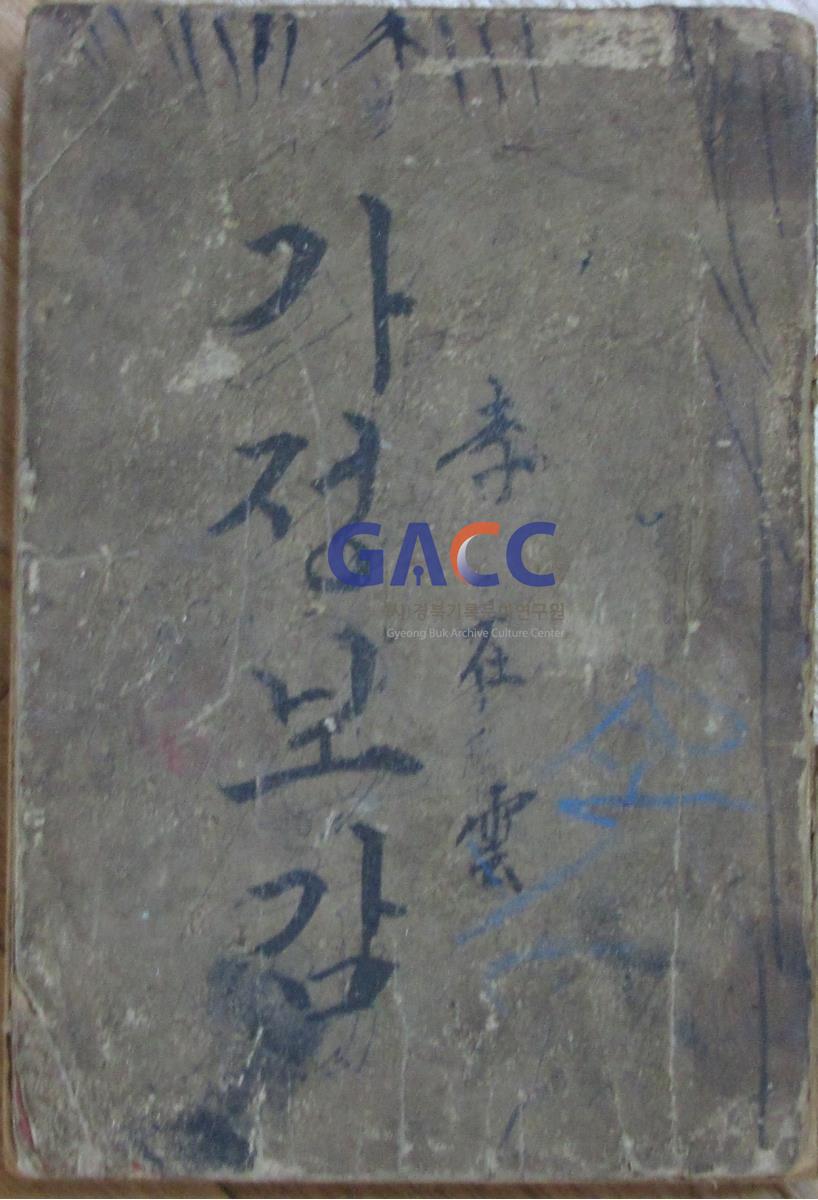 가정보감
李在雲
소
GACC
(사)경북기록문화연구원
Gyeong Buk Archive Culture Center